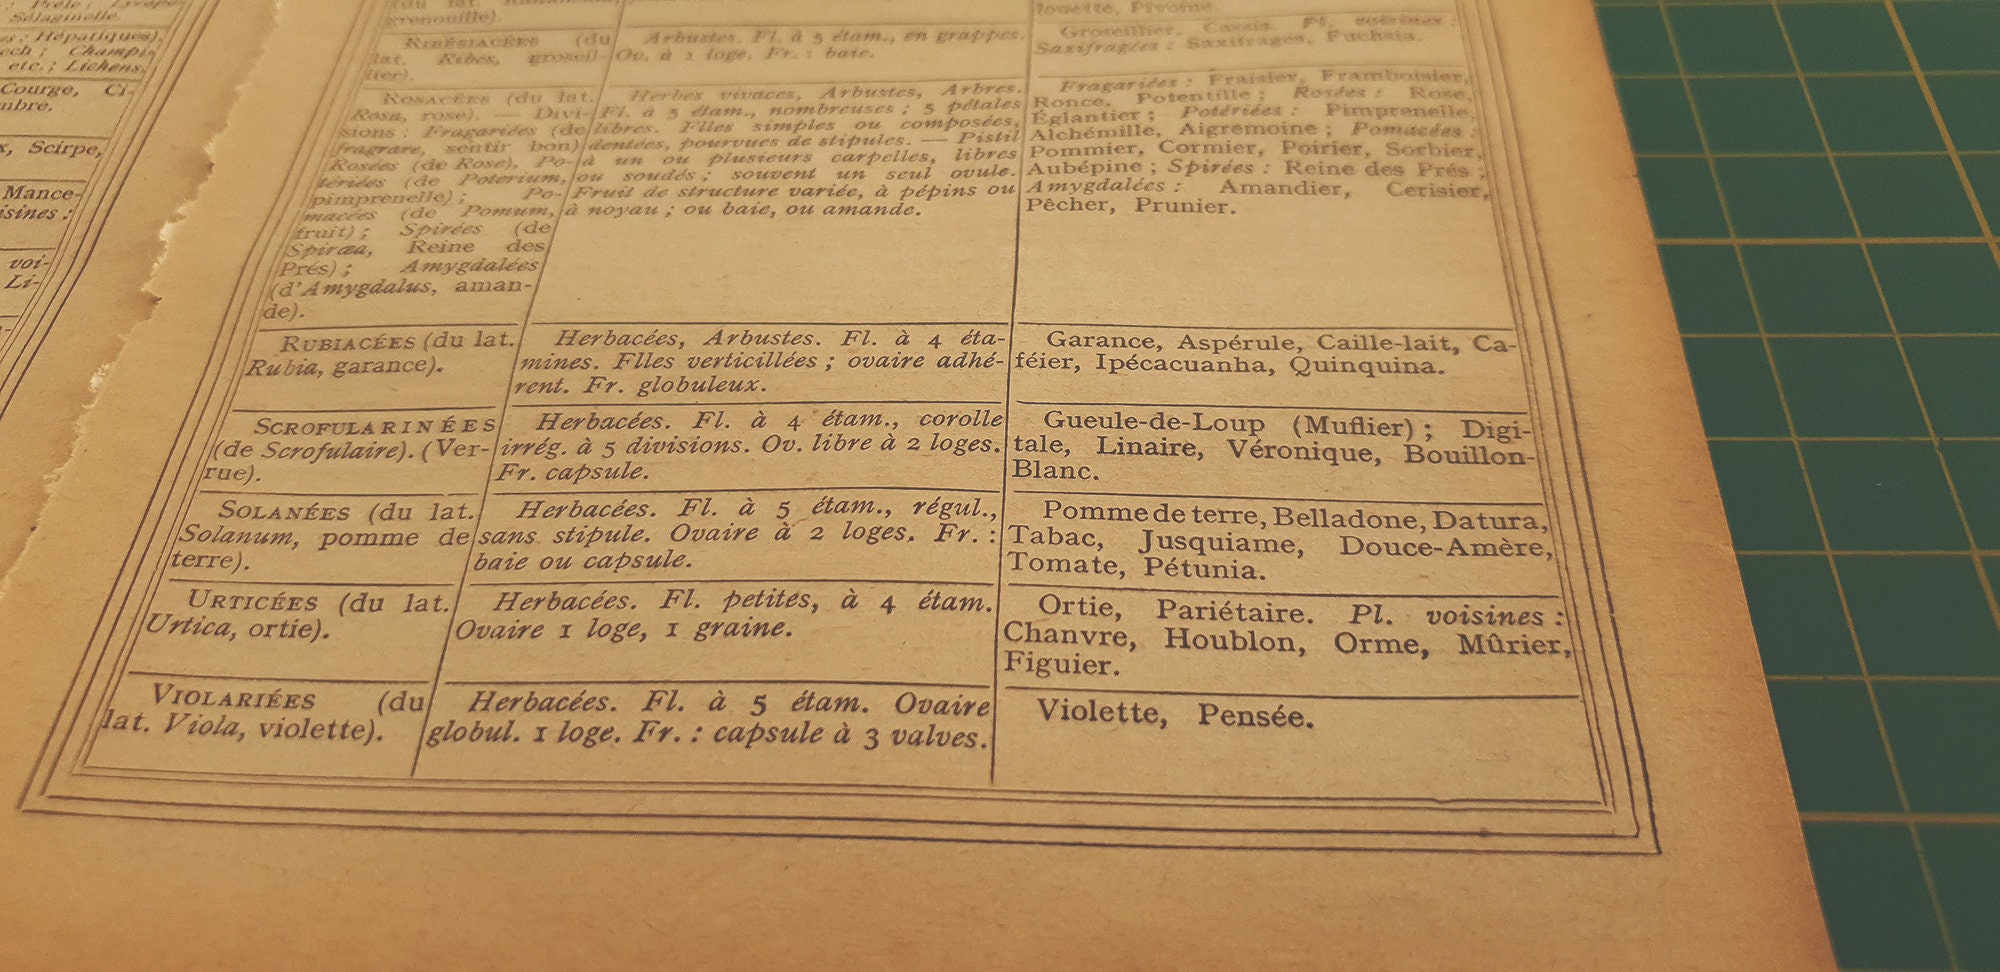 Prêle ;
Sélaginelle.
Hépatiques),
ech ; Champi-
etc. ; Lichens.
Courge, Ci-
mbre.
x, Scirpe,
Mance-
isines :
voi-
Li-
grenouille).
RIBÉSIACÉES (du
lat. Ribes, groseil-
lier).
Arbustes. Fl. à 5 étam., en grappes.
Ov. à 1 loge. Fr. : baie.
Pivoine.
Groseillier, Cassis. Pl. voisines :
Saxifragées : Saxifrages, Fuchsia.
ROSACÉES (du lat.
Rosa, rose). — Divi-
sions : Fragariées (de
fragrare, sentir bon)
Rosées (de Rose), Po-
tériées (de Poterium,
pimprenelle) ; Po-
macées (de Pomum,
fruit) ; Spirées (de
Spiræa, Reine des
Prés) ; Amygdalées
(d'Amygdalus, aman-
de).
Herbes vivaces, Arbustes, Arbres.
Fl. à 5 étam., nombreuses ; 5 pétales
libres. Flles simples ou composées,
dentées, pourvues de stipules. — Pistil
à un ou plusieurs carpelles, libres
ou soudés ; souvent un seul ovule.
Fruit de structure variée, à pépins ou
à noyau ; ou baie, ou amande.
Fragariées : Fraisier, Framboisier,
Ronce, Potentille ; Rosées : Rose,
Églantier ; Potériées : Pimprenelle,
Alchémille, Aigremoine ; Pomacées :
Pommier, Cormier, Poirier, Sorbier,
Aubépine ; Spirées : Reine des Prés ;
Amygdalées : Amandier, Cerisier,
Pêcher, Prunier.
RUBIACÉES (du lat.
Rubia, garance).
Herbacées, Arbustes. Fl. à 4 éta-
mines. Flles verticillées ; ovaire adhé-
rent. Fr. globuleux.
Garance, Aspérule, Caille-lait, Ca-
féier, Ipécacuanha, Quinquina.
SCROFULARINÉES
(de Scrofulaire). (Ver-
rue).
Herbacées. Fl. à 4 étam., corolle
irrég. à 5 divisions. Ov. libre à 2 loges.
Fr. capsule.
Gueule-de-Loup (Muflier) ; Digi-
tale, Linaire, Véronique, Bouillon-
Blanc.
SOLANÉES (du lat.
Solanum, pomme de
terre).
Herbacées. Fl. à 5 étam., régul.,
sans stipule. Ovaire à 2 loges. Fr. :
baie ou capsule.
Pomme de terre, Belladone, Datura,
Tabac, Jusquiame, Douce-Amère,
Tomate, Pétunia.
URTICÉES (du lat.
Urtica, ortie).
Herbacées. Fl. petites, à 4 étam.
Ovaire 1 loge, 1 graine.
Ortie, Pariétaire. Pl. voisines :
Chanvre, Houblon, Orme, Mûrier,
Figuier.
VIOLARIÉES (du
lat. Viola, violette).
Herbacées. Fl. à 5 étam. Ovaire
globul. 1 loge. Fr. : capsule à 3 valves.
Violette, Pensée.